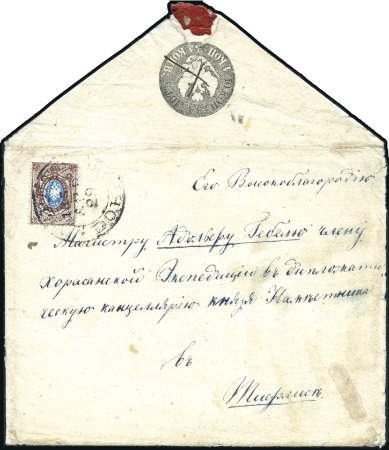 Его Высокоблагородію
Магистру Адольфу Гебелю члену
Хорасанской Экспедиціи въ дипломати
ческую канцелярію князя Намѣстника
въ
Тифлисѣ.